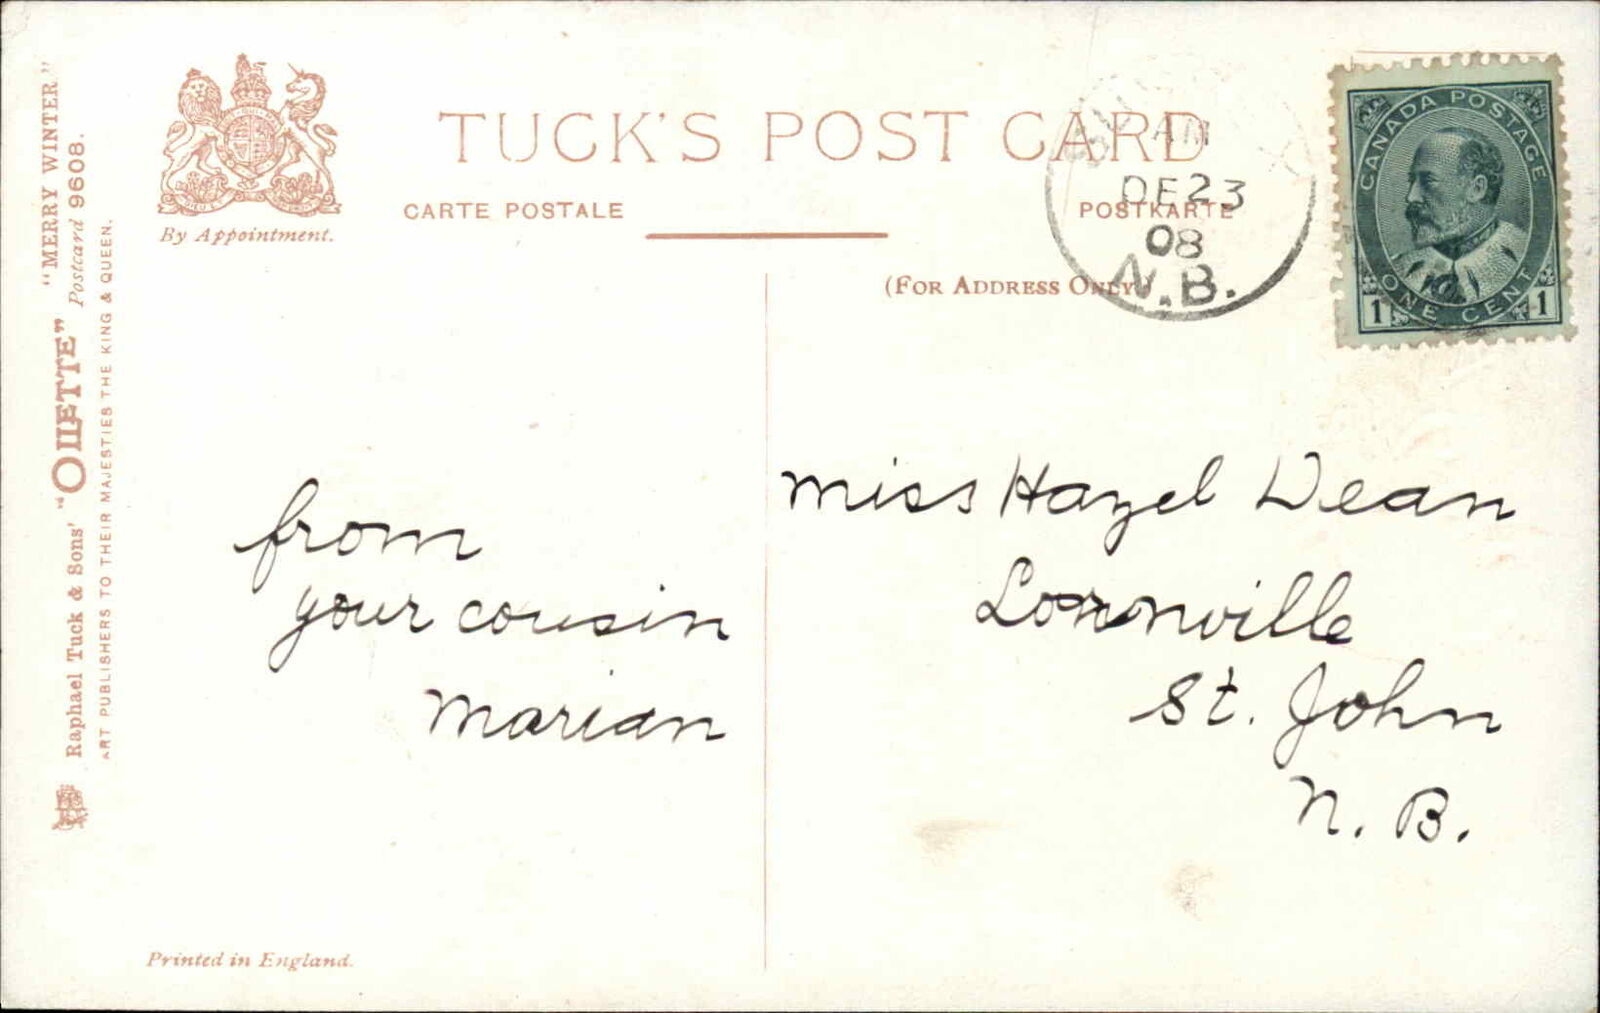 TUCK'S POST CARD
CARTE POSTALE
POSTKARTE
(FOR ADDRESS ONLY)
By Appointment.
"MERRY WINTER"
Raphael Tuck & Sons' "OILETTE" Postcard 9608.
ART PUBLISHERS TO THEIR MAJESTIES THE KING & QUEEN.
AM
DE 23
08
N.B.
CANADA POSTAGE
ONE CENT
1 1
from
your cousin
Marian
Miss Hazel Dean
St. John
N. B.
Printed in England.